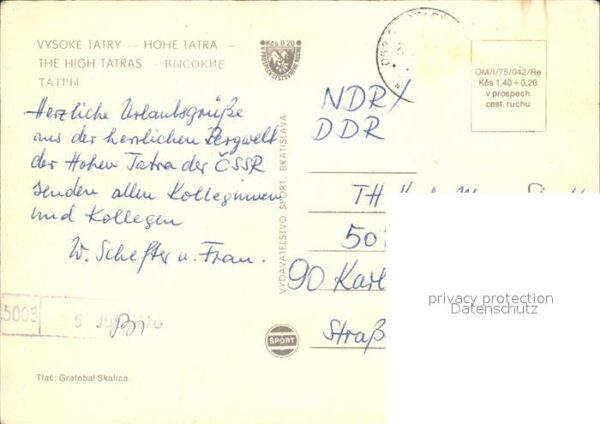 VYSOKÉ TATRY — HOHE TATRA —
THE HIGH TATRAS — ВЫСОКИЕ
ТАТРЫ
Kčs 0.20
OM/I/75/042/Re
Kčs 1,40+0,20
v prospech
cest. ruchu
Herzliche Urlaubsgrüße
aus der herrlichen Bergwelt
der Hohen Tatra der ČSSR
senden allen Kolleginnen
und Kollegen
W. Schefter u. Frau.
VYDAVATEĽSTVO ŠPORT, BRATISLAVA
DDR
TH
90 Karl
Straße
privacy protection
Datenschutz
5003
ŠPORT
Tlač: Grafobal Skalica